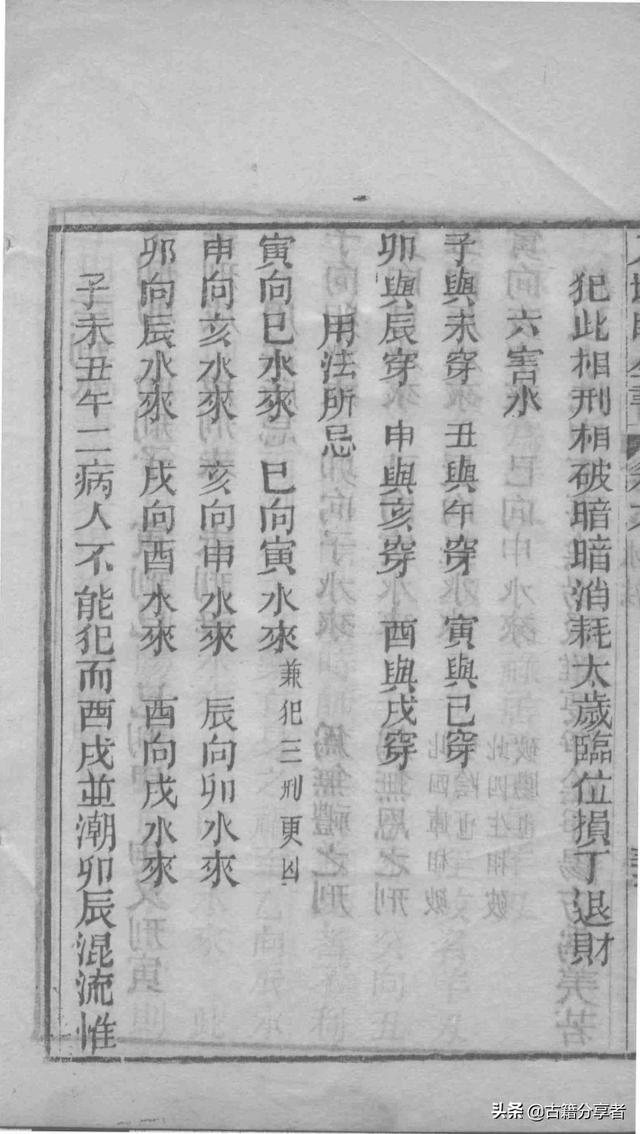 犯此相刑相破暗暗消耗太歲臨位損丁退財
六害水
子與未穿 丑與午穿 寅與巳穿
卯與辰穿 申與亥穿 酉與戌穿
用法所忌
寅向巳水來 巳向寅水來 兼犯三刑更凶
申向亥水來 亥向申水來 辰向卯水來
卯向辰水來 戌向酉水來 酉向戌水來
子未丑午二病人不能犯而酉戌並潮卯辰混流惟
头条 @古籍分享者